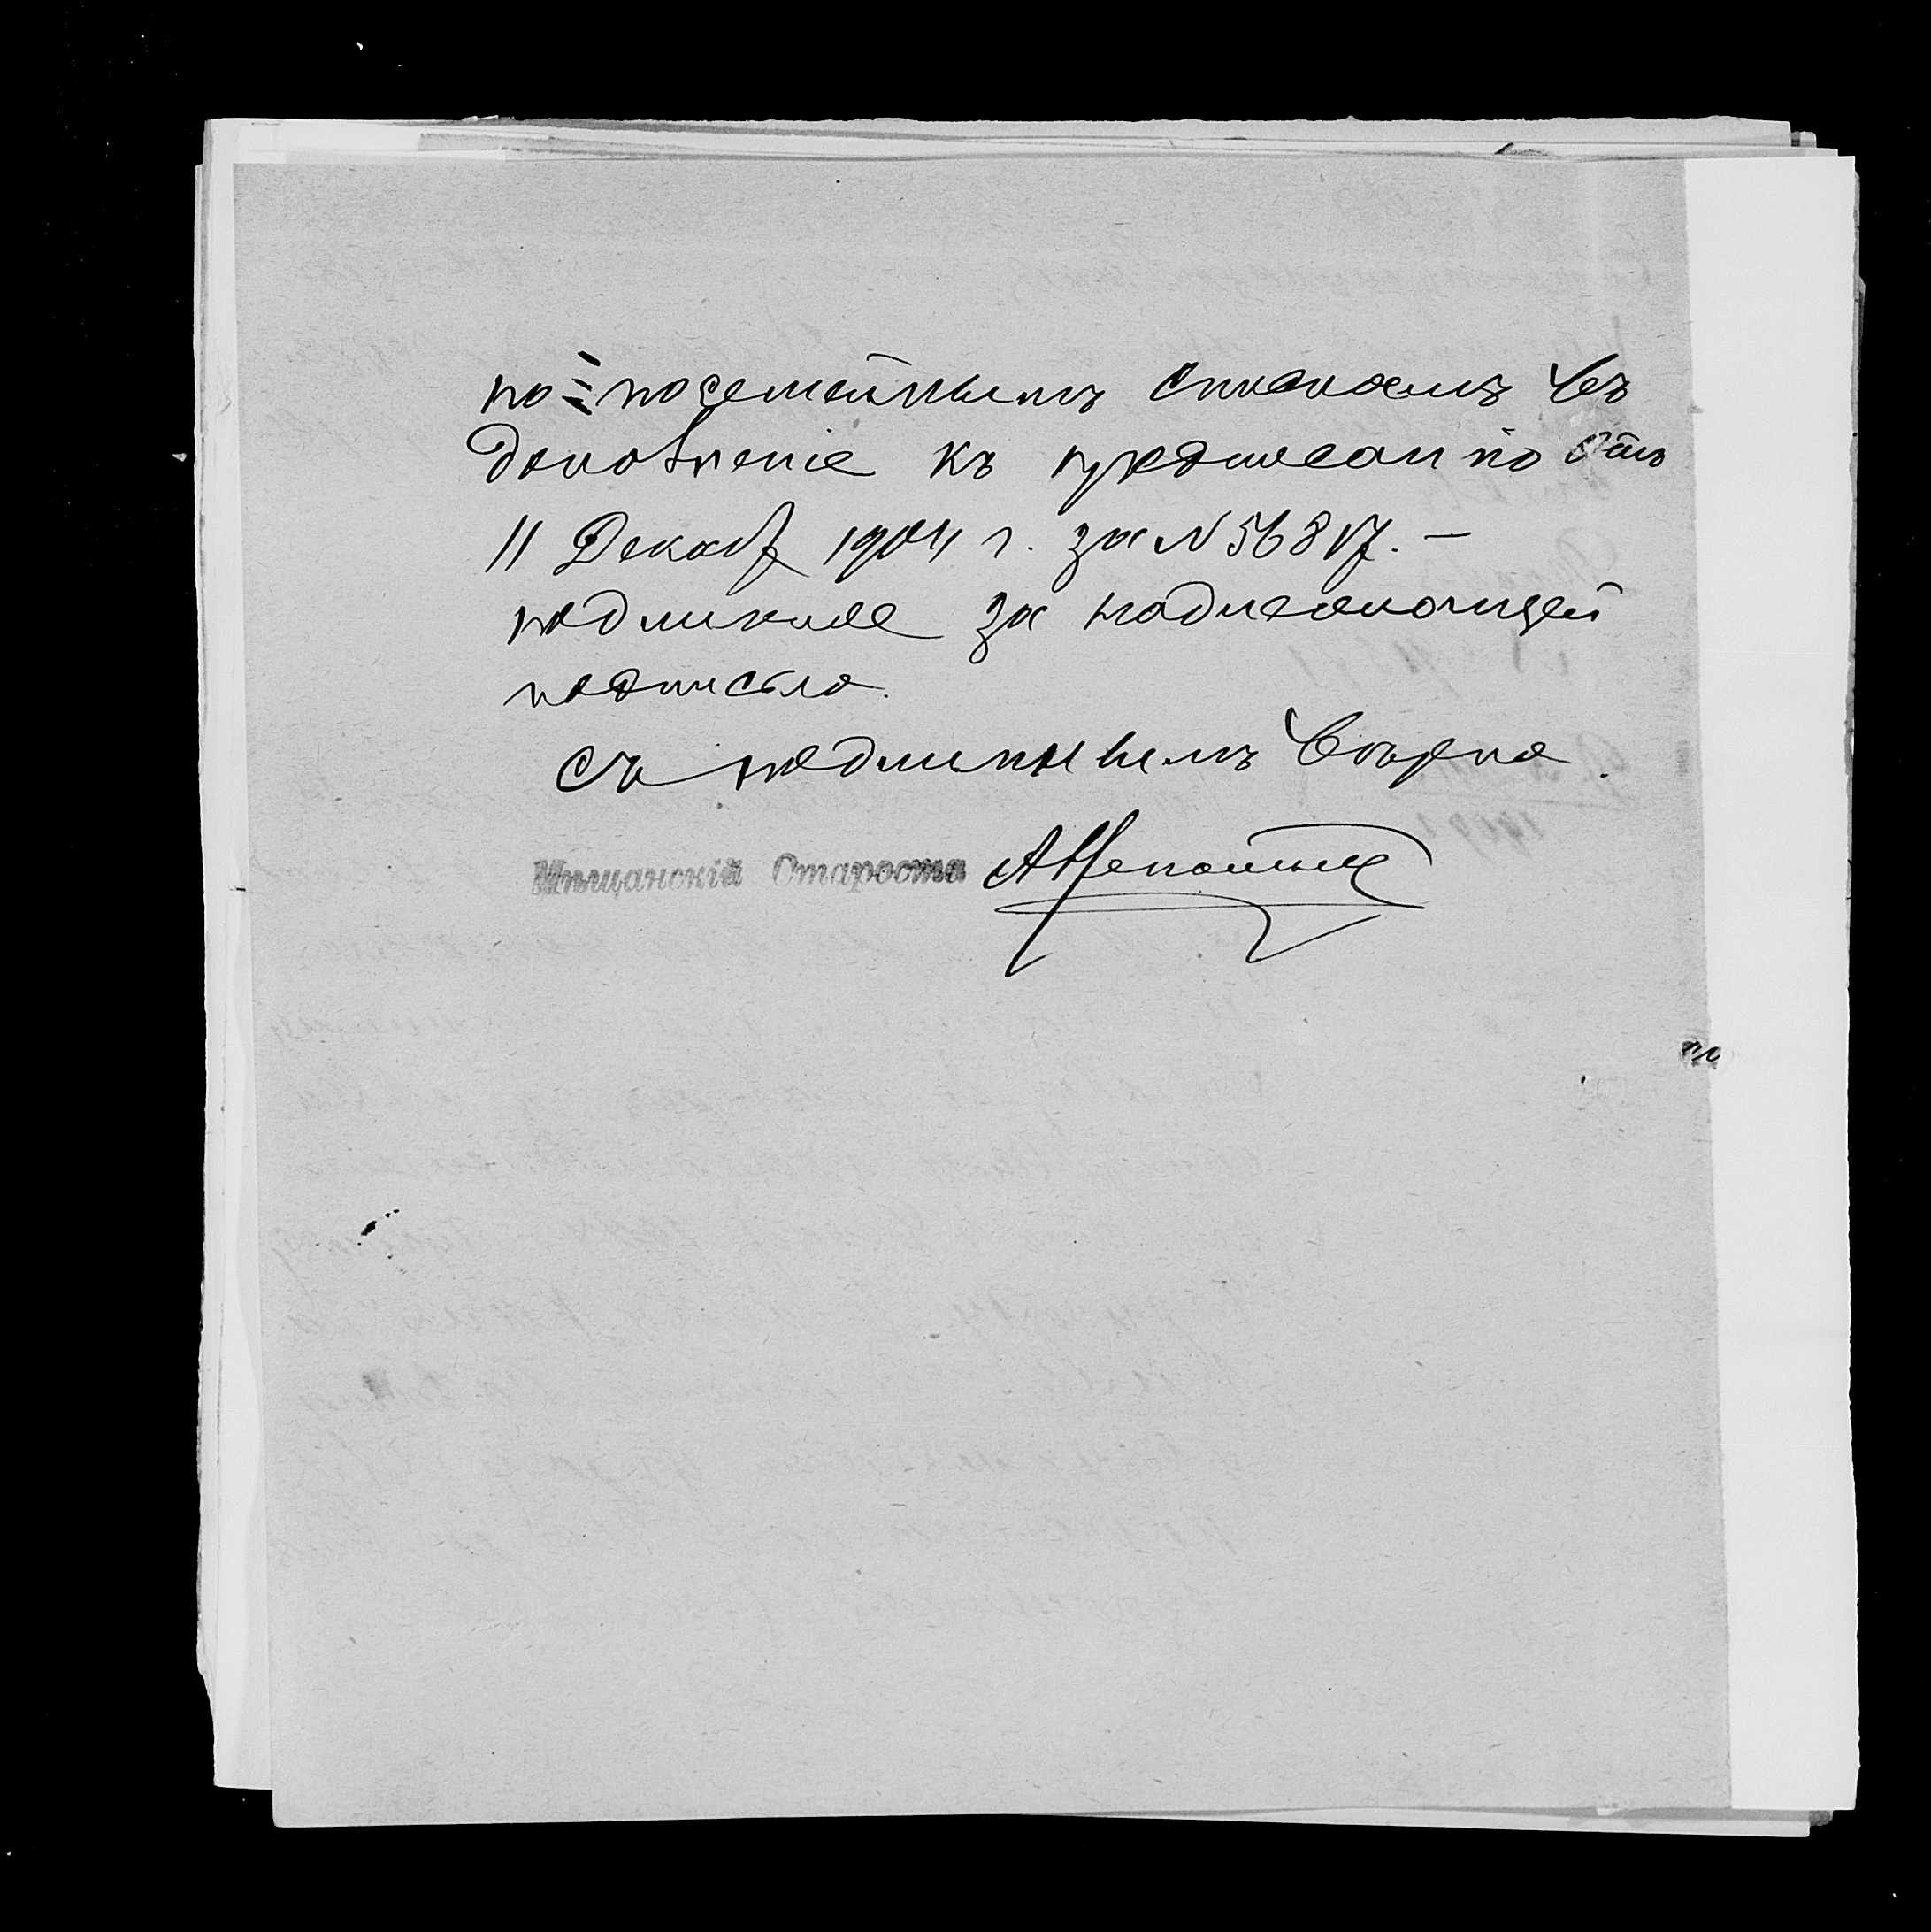 по посемейнымъ спискамъ въ
дополненіе къ предписанію отъ
11 Декабр 1904 г. за N 56817. –
подлинное за надлежащей
подписью.
Съ подлиннымъ вѣрно.
Мѣщанскій Староста